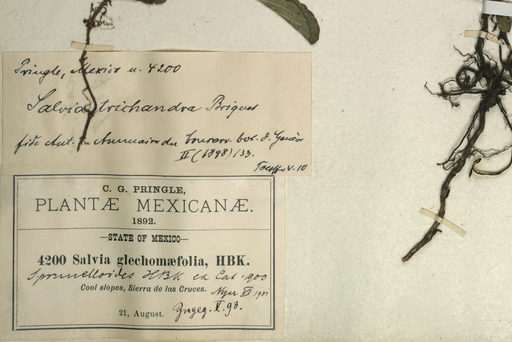 Pringle, Mexico n. 4200
Salvia trichandra Briquet
fide Aut. in Annuaire du Conserv. bot. d. Genève
II (1898) 133.
V. 10
C. G. PRINGLE,
PLANTÆ MEXICANÆ.
1892.
STATE OF MEXICO
4200 Salvia glechomæfolia, HBK.
S. prunelloides HBK ex Cat. 1900
Cool slopes, Sierra de las Cruces.
21, August.
V. 93.